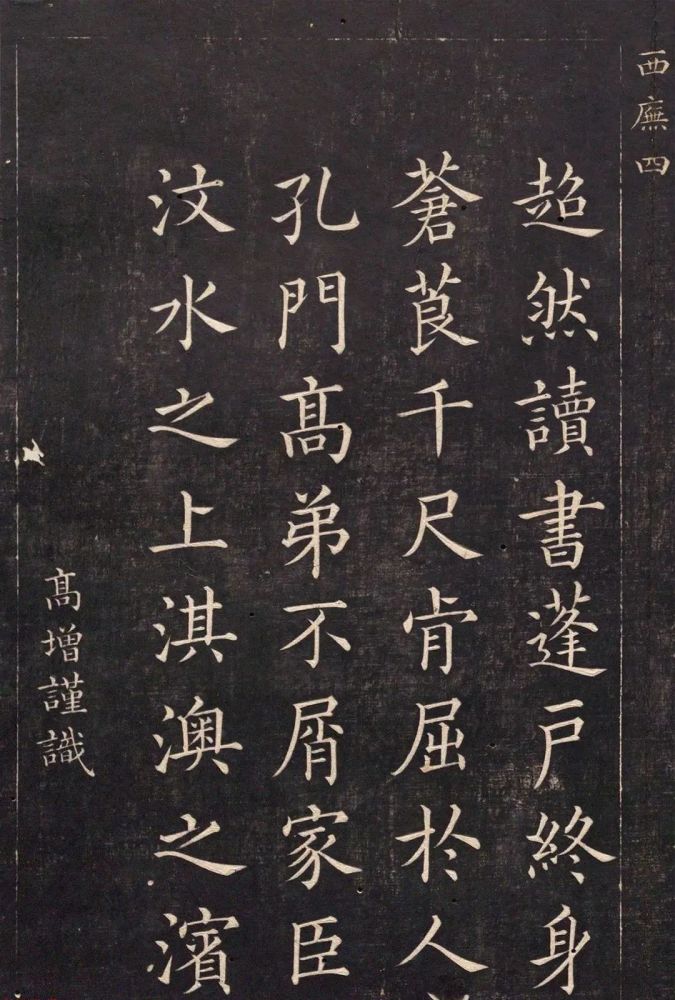 西廡四
超然讀書蓬戶終身
蒼茛千尺肯屈於人
孔門高弟不屑家臣
汶水之上淇澳之濱
高增謹識